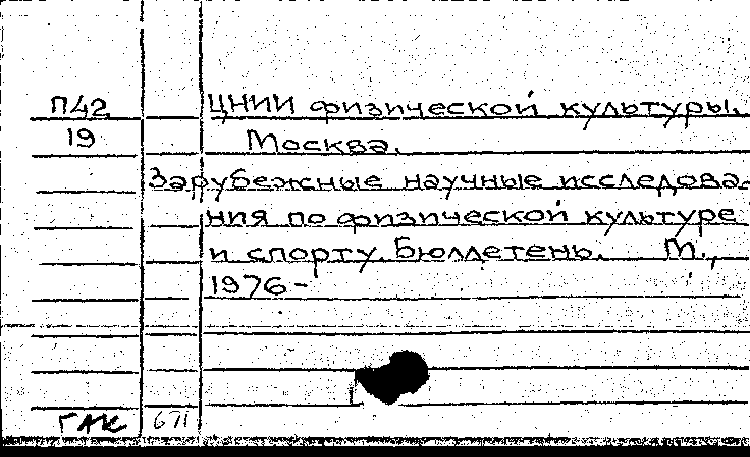 П42 ЦНИИ физической культуры.
19 Москва.
Зарубежные научные исследова-
ния по физической культуре
и спорту. Бюллетень. М.,
1976-
ГАК 671